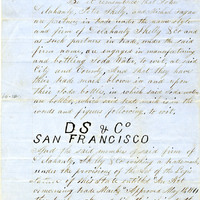 as partners in trade under the name style
and firm of Delahanty, Skelly & Co and
as such partners in trade, under the said
firm name, are engaged in manufacturing
and bottling Soda Water, to wit, at said
City and County, And that they have
their trade mark blown in and upon
their Soda bottles, in which said soda water
are bottled, which said trade mark is in the
words and figures following, to wit.
DS & Co
SAN FRANCISCO
And the said members of said firm of
Delahanty, Skelly & Co
under the provisions of the Act of the Legis
lature of this State entitled An Act
concerning trade Marks Approved May